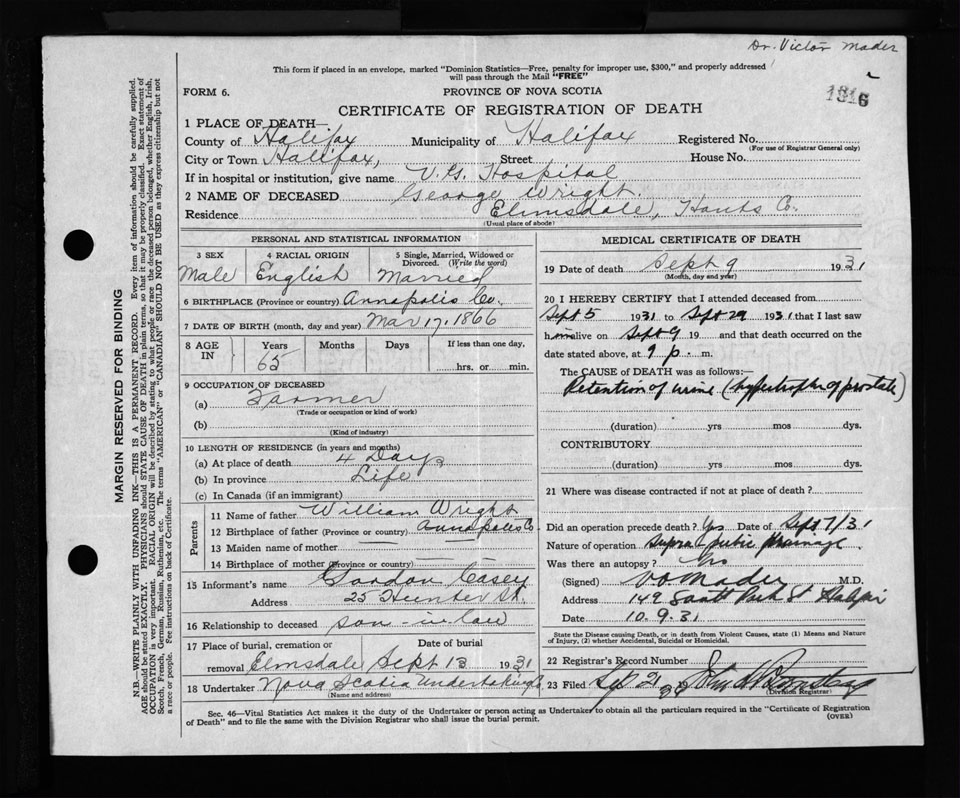 Dr. Victor Mader
1316
This form if placed in an envelope, marked "Dominion Statistics—Free, penalty for improper use, $300," and properly addressed
will pass through the Mail "FREE"
FORM 6.
PROVINCE OF NOVA SCOTIA
CERTIFICATE OF REGISTRATION OF DEATH
1 PLACE OF DEATH—
County of Halifax Municipality of Halifax Registered No.
(For use of Registrar General only)
City or Town Halifax, Street House No.
If in hospital or institution, give name V. G. Hospital
2 NAME OF DECEASED George Wright.
Residence Elmsdale, Hants Co.
(Usual place of abode)
MARGIN RESERVED FOR BINDING
N.B.—WRITE PLAINLY WITH UNFADING INK—THIS IS A PERMANENT RECORD. Every item of information should be carefully supplied.
AGE should be stated EXACTLY. PHYSICIANS should STATE CAUSE OF DEATH in plain terms, so that it may be properly classified. Exact statement of
OCCUPATION is very important. RACIAL ORIGIN will be described by stating to what people or race the deceased person belonged, whether English, Irish,
Scotch, French, German, Russian, Ruthenian, etc. The terms "AMERICAN" or "CANADIAN" SHOULD NOT BE USED as they express citizenship but not
a race or people. See instructions on back of Certificate.
PERSONAL AND STATISTICAL INFORMATION
3 SEX
Male
4 RACIAL ORIGIN
English
5 Single, Married, Widowed or
Divorced. (Write the word)
Married
6 BIRTHPLACE (Province or country) Annapolis Co.
7 DATE OF BIRTH (month, day and year) Mar 17, 1866
8 AGE IN
Years Months Days If less than one day,
65 hrs. or min.
9 OCCUPATION OF DECEASED
(a) Farmer
(Trade or occupation or kind of work)
(b)
(Kind of industry)
10 LENGTH OF RESIDENCE (in years and months)
(a) At place of death 4 Days
(b) In province Life
(c) In Canada (if an immigrant)
Parents
11 Name of father William Wright
12 Birthplace of father (Province or country) Annapolis Co.
13 Maiden name of mother —
14 Birthplace of mother (Province or country) —
15 Informant's name Gordon Casey
Address 25 Hunter St.
16 Relationship to deceased son-in-law
17 Place of burial, cremation or Date of burial
removal Elmsdale Sept 13 1931
18 Undertaker Nova Scotia Undertaking Co.
(Name and address)
MEDICAL CERTIFICATE OF DEATH
19 Date of death Sept 9 1931
(Month, day and year)
20 I HEREBY CERTIFY that I attended deceased from
Sept 5 1931 to Sept 29 1931 that I last saw
him alive on Sept 9 19 and that death occurred on the
date stated above, at 9 p. m.
The CAUSE of DEATH was as follows:—
Retention of urine (hypertrophy of prostate)
(duration) yrs mos dys.
CONTRIBUTORY
(duration) yrs. mos. dys.
21 Where was disease contracted if not at place of death?
Did an operation precede death? Yes Date of Sept 7/31
Nature of operation Supra-pubic drainage
Was there an autopsy? No
(Signed) V O Mader M.D.
Address 149 South Park St Halifax
Date 10.9.31
State the Disease causing Death, or in death from Violent Causes, state (1) Means and Nature
of Injury, (2) whether Accidental, Suicidal or Homicidal.
22 Registrar's Record Number
23 Filed Sep 21
(Division Registrar)
Sec. 46—Vital Statistics Act makes it the duty of the Undertaker or person acting as Undertaker to obtain all the particulars required in the "Certificate of Registration
of Death" and to file the same with the Division Registrar who shall issue the burial permit.
(OVER)